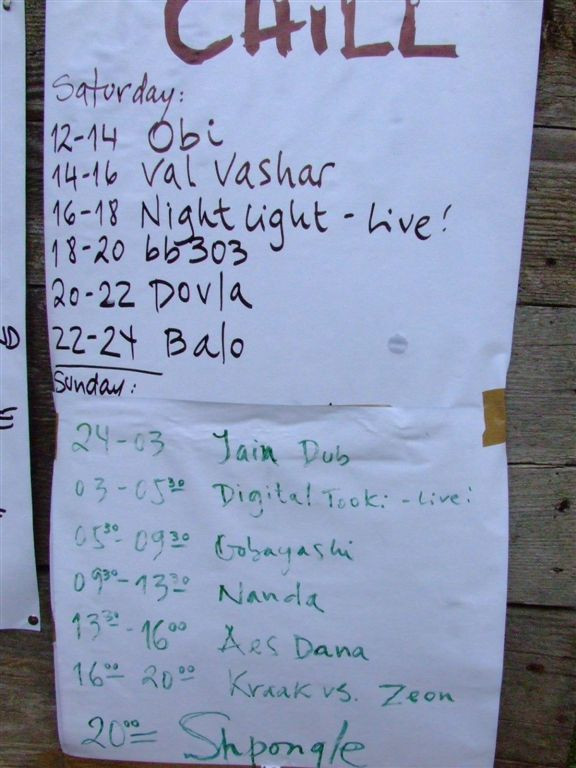 CHILL
Saturday:
12-14 Obi
14-16 Val Vashar
16-18 Night Light - Live!
18-20 bb303
20-22 Dovla
22-24 Balo
Sunday:
24-03 Jain Dub
03-05³⁰ Digital Tooki - Live!
05³⁰-09³⁰ Gobayashi
09³⁰-13³⁰ Nanda
13³⁰-16⁰⁰ Aes Dana
16⁰⁰-20⁰⁰ Kraak vs. Zeon
20⁰⁰= Shpongle